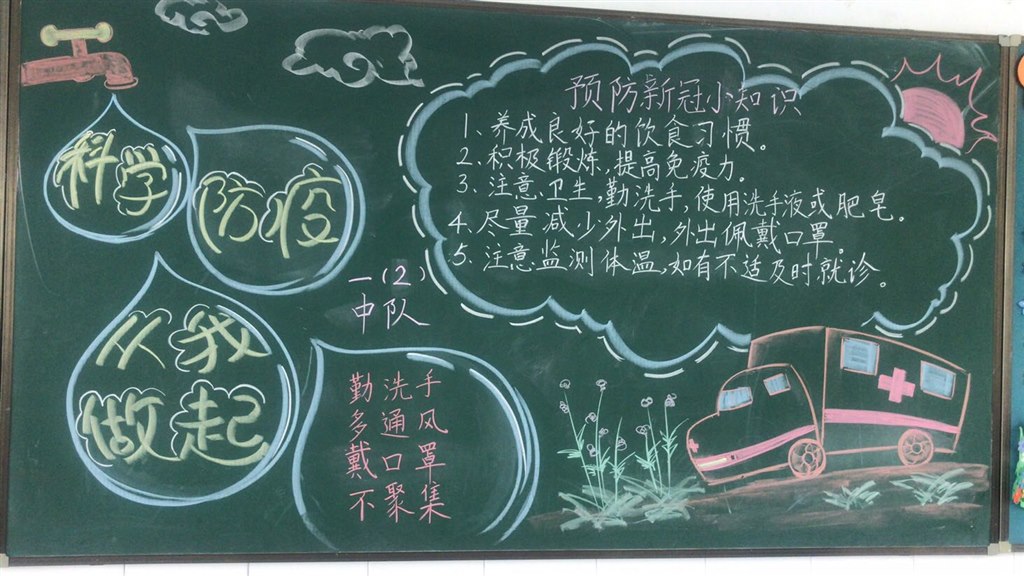 科学
防疫
从我
做起
一(2)
中队
勤洗手
多通风
戴口罩
不聚集
预防新冠小知识
1、养成良好的饮食习惯。
2、积极锻炼,提高免疫力。
3、注意卫生,勤洗手,使用洗手液或肥皂。
4、尽量减少外出,外出佩戴口罩。
5、注意监测体温,如有不适及时就诊。